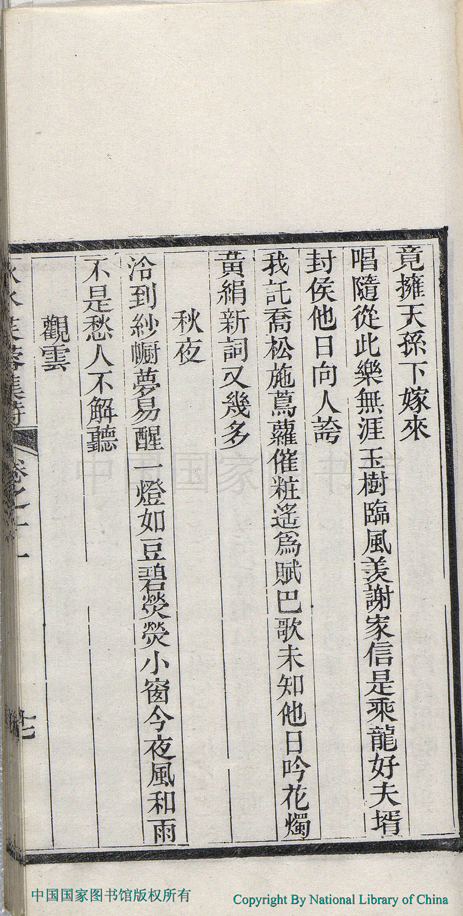 竟擁天孫下嫁來
唱隨從此樂無涯玉樹臨風羨謝家信是乘龍好夫壻
封侯他日向人誇
我託喬松施蔦蘿催粧遙爲賦巴歌未知他日吟花燭
黃絹新詞又幾多
秋夜
冷到紗㡡夢易醒一燈如豆碧熒熒小窗今夜風和雨
不是愁人不解聽
觀雲
芙蓉集詩 卷之十一
十七
中国国家图书馆
中国国家图书馆版权所有
Copyright By National Library of China